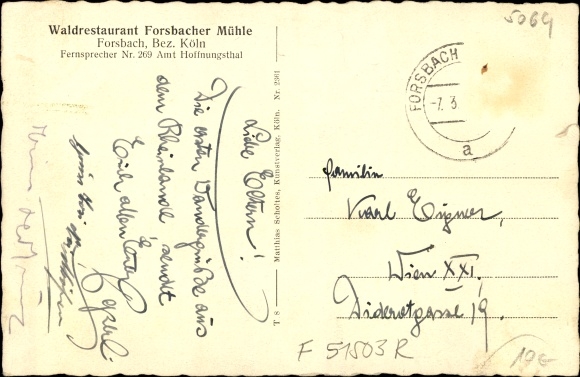 Waldrestaurant Forsbacher Mühle
Forsbach, Bez. Köln
Fernsprecher Nr. 269 Amt Hoffnungsthal
Liebe Eltern!
Die ersten Wandergrüße aus
dem Rheinlande, sendt
Euch allen Euer
T 8 — Matthias Scholtes, Kunstverlag, Köln. Nr. 2301
FORSBACH
-7. 3
a
Familie
Karl Eigner,
Wien XXI,
Diderotgasse 19.
5069
F 51503 R
10€